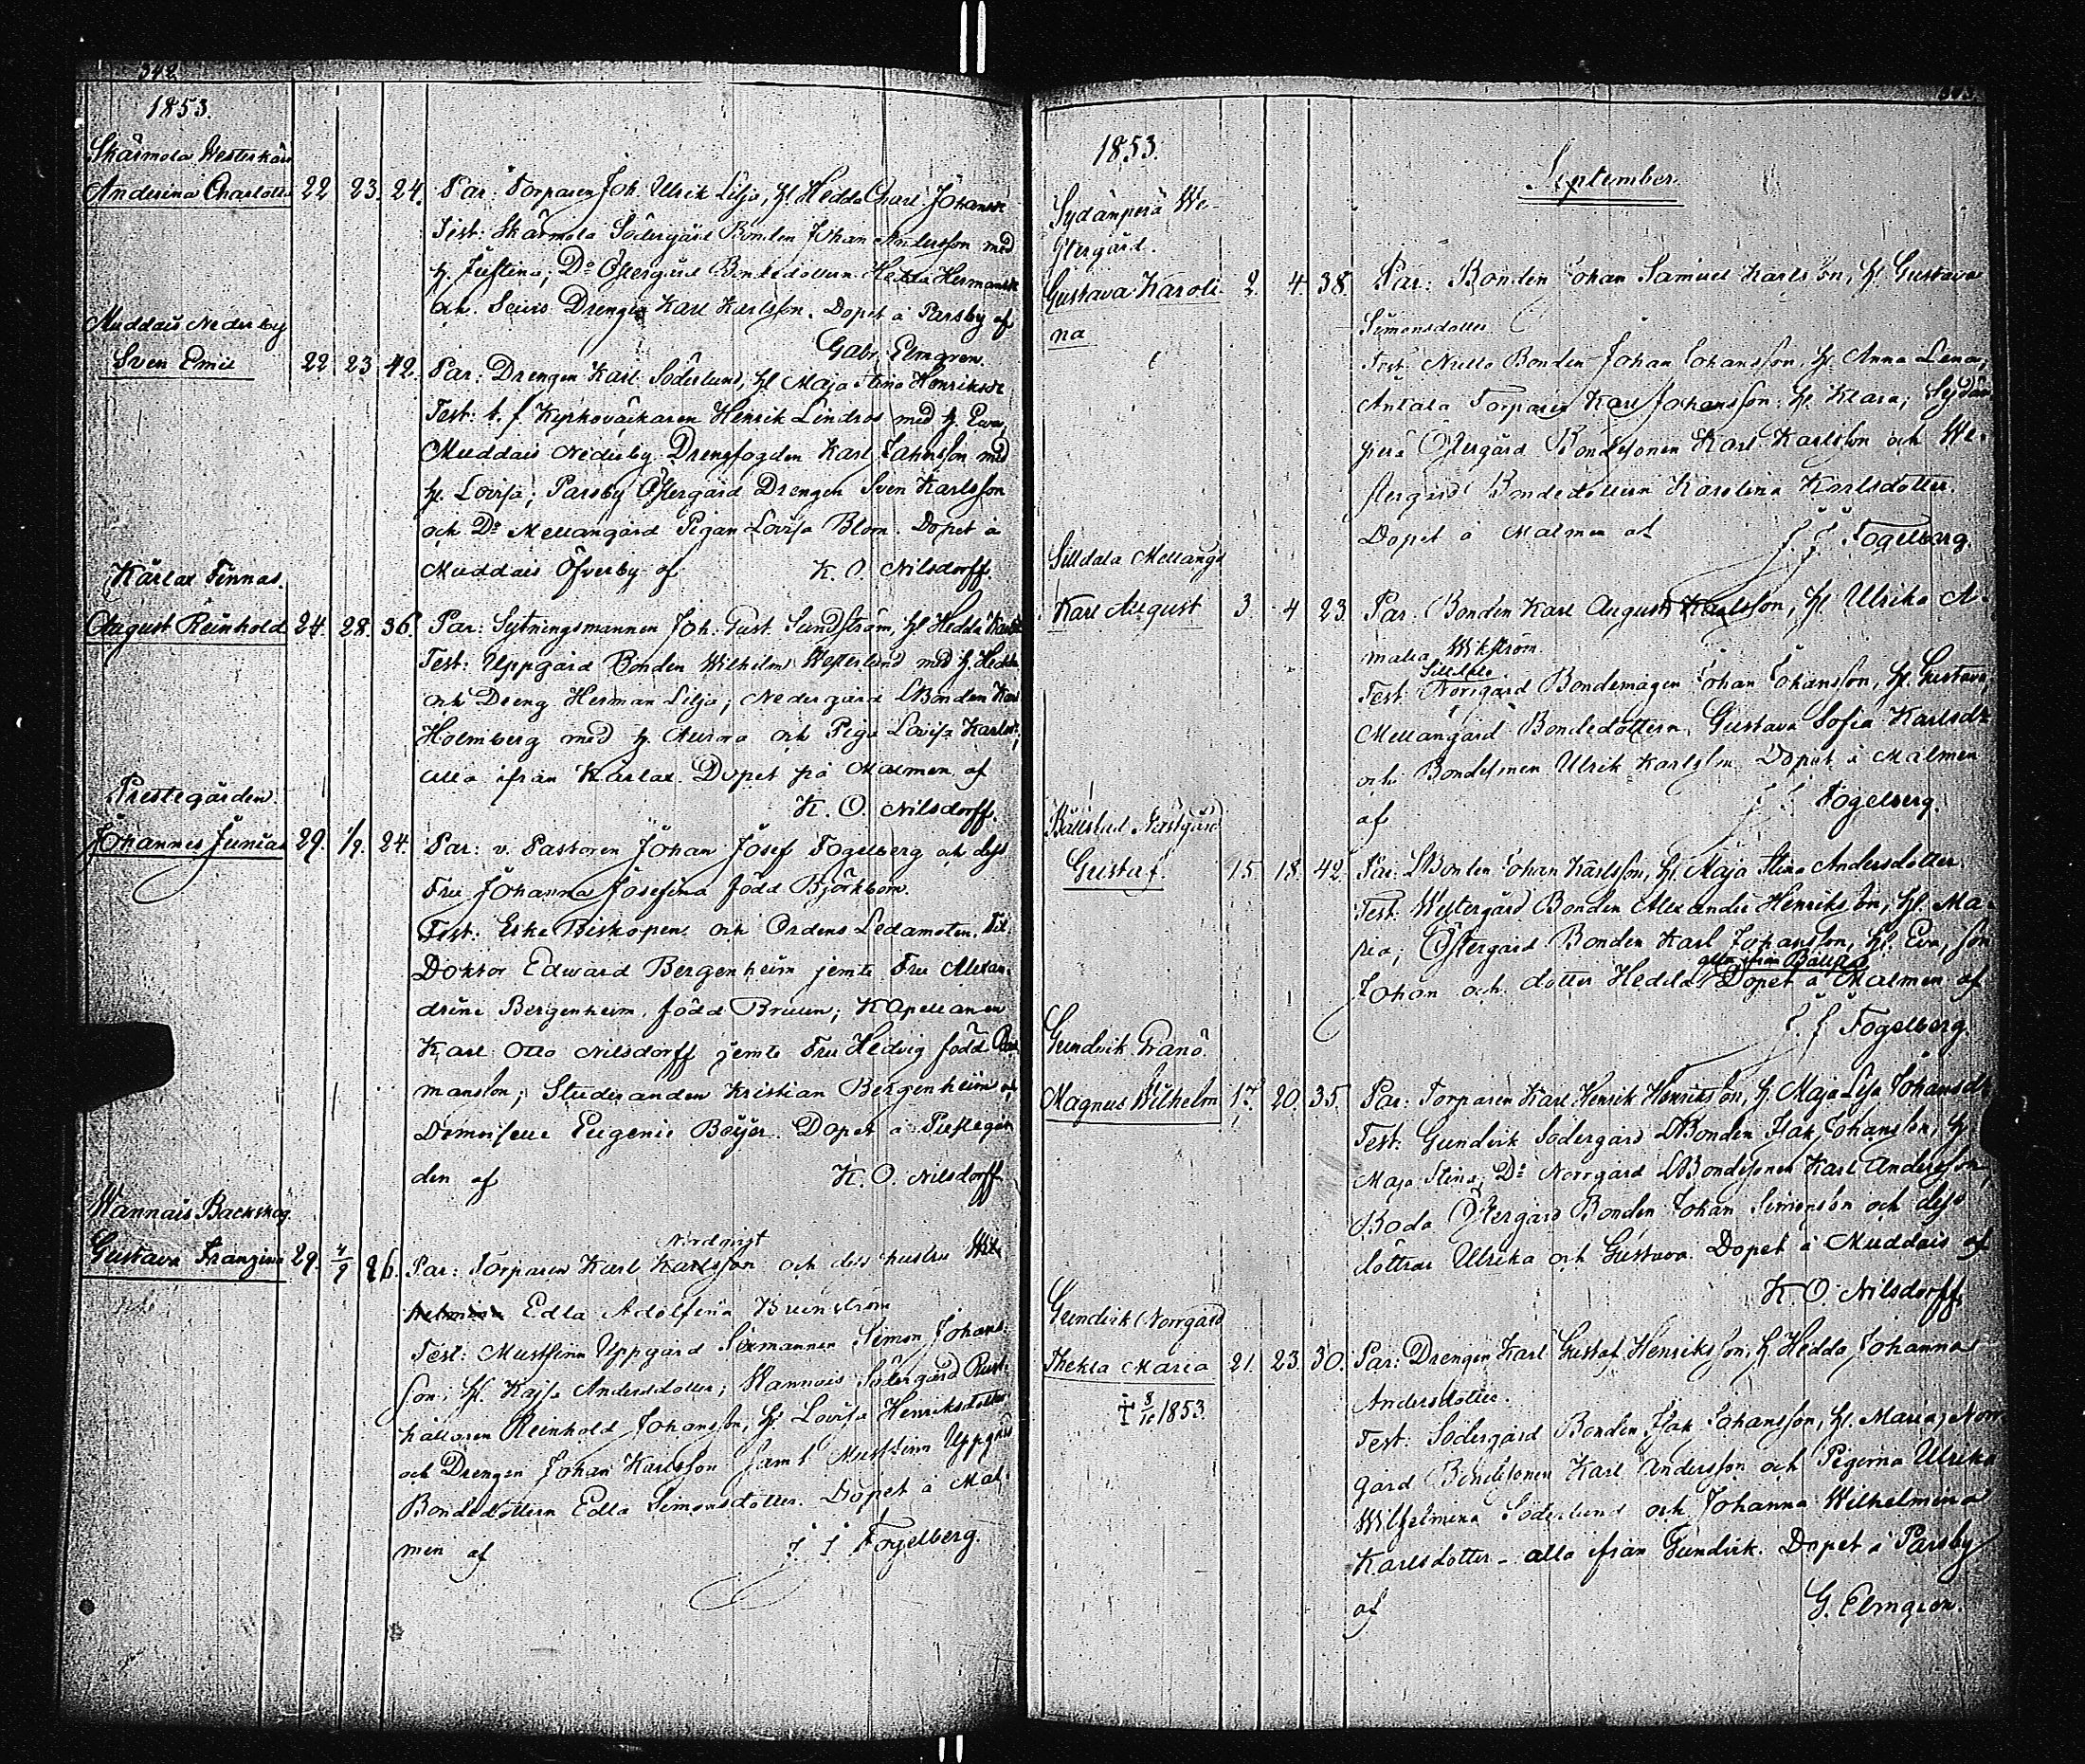 342
1853.
Skärmola Westerkärr
Anderina Charlotta 22 23. 24. Par: Torparen Joh. Ulrik Lilja, h. Hedda Charl. Johansdr
Test: Skärmola Södergård Bonden Johan Andersson med
h. Justina; Do Östergård Bondedottern Hedda Hermansdr
och Drengen Karl Karlsson. Dopet å Parsby af
Gabr. Elmgren.
Muddais Nederby
Sven Emil 22 23 42. Par: Drengen Karl Söderlund, h. Maja Stina Henriksdr
Test: t. f. Kyrkoväktaren Henrik Lindros med h. Eva,
Muddais Nederby Drengfogden Karl Johnsson med
h. Lovisa; Parsby Östergård Drengen Sven Karlsson
och Do Mellangård Pigan Lovisa Blom. Dopet å
Muddais Öfverby af K. O. Nilsdorff.
Kärlax Finnas.
August Reinhold 24. 28. 36. Par: Sytningsmannen Joh. Gust. Sundström, h. Hedda
Test: Uppgård Bonden Wilhelm Westerlund med h. Hedda
och Dreng Herman Lilja; Nedergård LBonden Karl
Holmberg med h. Aurora och Piga Lovisa Karlsdr,
alla ifrån Kärlax. Dopet på Malmen af
K. O. Nilsdorff.
Prestegården.
Johannes Junias 29. 1/9. 24. Par: v. Pastoren Johan Josef Fogelberg och dess
Fru Johanna Josefina född Björkbom.
Test: Erke Biskopen och Ordens Ledamoten, Fil.
Doktor Edward Bergenheim jemte Fru Alexan-
drine Bergenheim, född Bruun; Kapellanen
Karl Otto Nilsdorff jemte Fru Hedvig född
mansson; Studeranden Kristian Bergenheim och
Domoiselle Eugenie Böijer. Dopet å Prestegår-
den af K. O. Nilsdorff
Wannais Backskog
Nordqvist
Gustava Franzina 29. 4/9 26. Par: Torparen Karl Karlsson och dess hustru
Edla Adolfina Brunström
Test: Mustfinn Uppgård Sexmannen Simon Johans-
son, h. Kajsa Andersdotter; Wannais Södergård Rust-
hållaren Reinhold Johansson, h. Lovisa Henriksdotter
och Drengen Johan Karlsson samt Mustfinn Uppgård
Bondedottern Edla Simonsdotter. Dopet å Mal-
men af J. J. Fogelberg.
343.
1853.
September.
Sydänperä We-
stergård.
Gustava Karoli- 2. 4. 38. Par: Bonden Johan Samuel Karlsson, h. Gustava
na Simonsdotter
Test: Bonden Johan Johansson, h. Anna Lena,
Ankala Torparen Karl Johansson, h. Klara; Sydän-
perä Östergård Bondesonen Karl Karlsson och We-
stergård Bondedottern Karolina Karlsdotter.
Dopet å Malmen af J. J. Fogelberg.
Silldala Mellangd
Karl August 3. 4 23. Par: Bonden Karl August Karlsson, h. Ulrika A-
malia Wikström.
Silldala
Test: Norrgård Bondemågen Johan Johansson, h. Gustava,
Mellangård Bondedottern Gustava Sofia Karlsdr
och Bondesonen Ulrik Karlsson. Dopet å Malmen
af J. J. Fogelberg.
Gustaf. 15 18. 42. Par: LBonden Johan Karlsson, h. Maja Stina Andersdotter.
Test: Westergård Bonden Alexander Henriksson, h. Ma-
ria; Östergård Bonden Karl Johansson, h. Eva, son
alla ifrån
Johan och dotter Hedda. Dopet å Malmen af
J. J. Fogelberg.
Gundvik Granö.
Magnus Wilhelm 17. 20. 35. Par: Torparen Karl Henrik Henriksson, h. Maja Lisa Johansdr
Test: Gundvik Södergård LBonden Isak Johansson, h.
Maja Stina, Do Norrgård LBondesonen Karl Andersson,
Boda Östergård Bonden Johan Simonsson och dess
döttrar Ulrika och Gustava. Dopet å Muddais af
K. O. Nilsdorff.
Gundvik Norrgård
Thekla Maria 21. 23. 30. Par: Drengen Karl Gustaf Henriksson, h. Hedda Johanna
† 8/10 1853. Andersdotter.
Test: Södergård Bonden Isak Johansson, h. Maria; Norr-
gård Bondesonen Karl Andersson och Pigorna Ulrika
Wilhelmina Söderlund och Johanna Wilhelmina
Karlsdotter - alla ifrån Gundvik. Dopet å Parsby
af G. Elmgren.